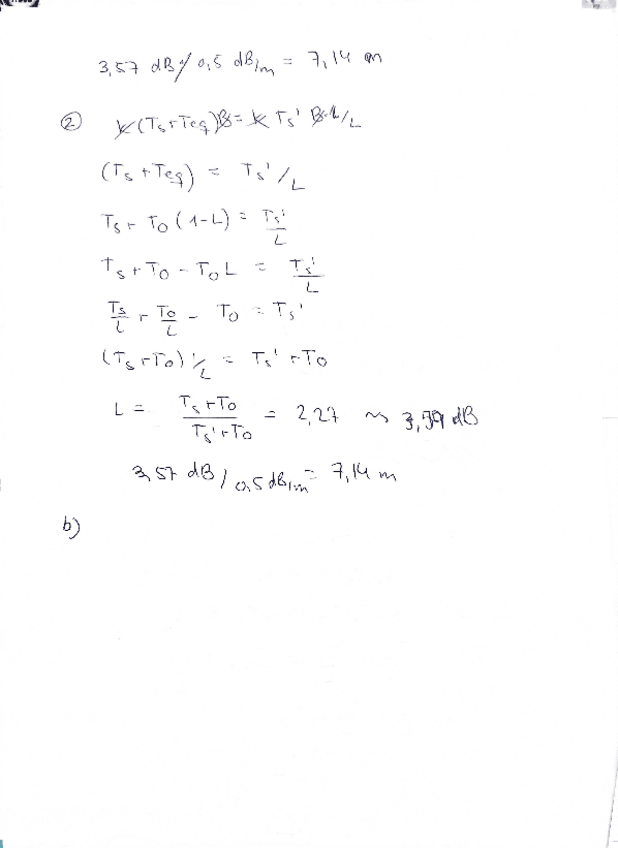 3,57 dB / 0,5 dB/m = 7,14 m
② k(Ts+Teq)B = k Ts' B·1/L
(Ts + Teq) = Ts'/L
Ts + To (1-L) = Ts'/L
Ts + To - To L = Ts'/L
Ts/L + To/L - To = Ts'
(Ts + To) 1/L = Ts' + To
L = (Ts + To)/(Ts' + To) = 2,27 ~ dB
3,57 dB / 0,5 dB/m = 7,14 m
b)